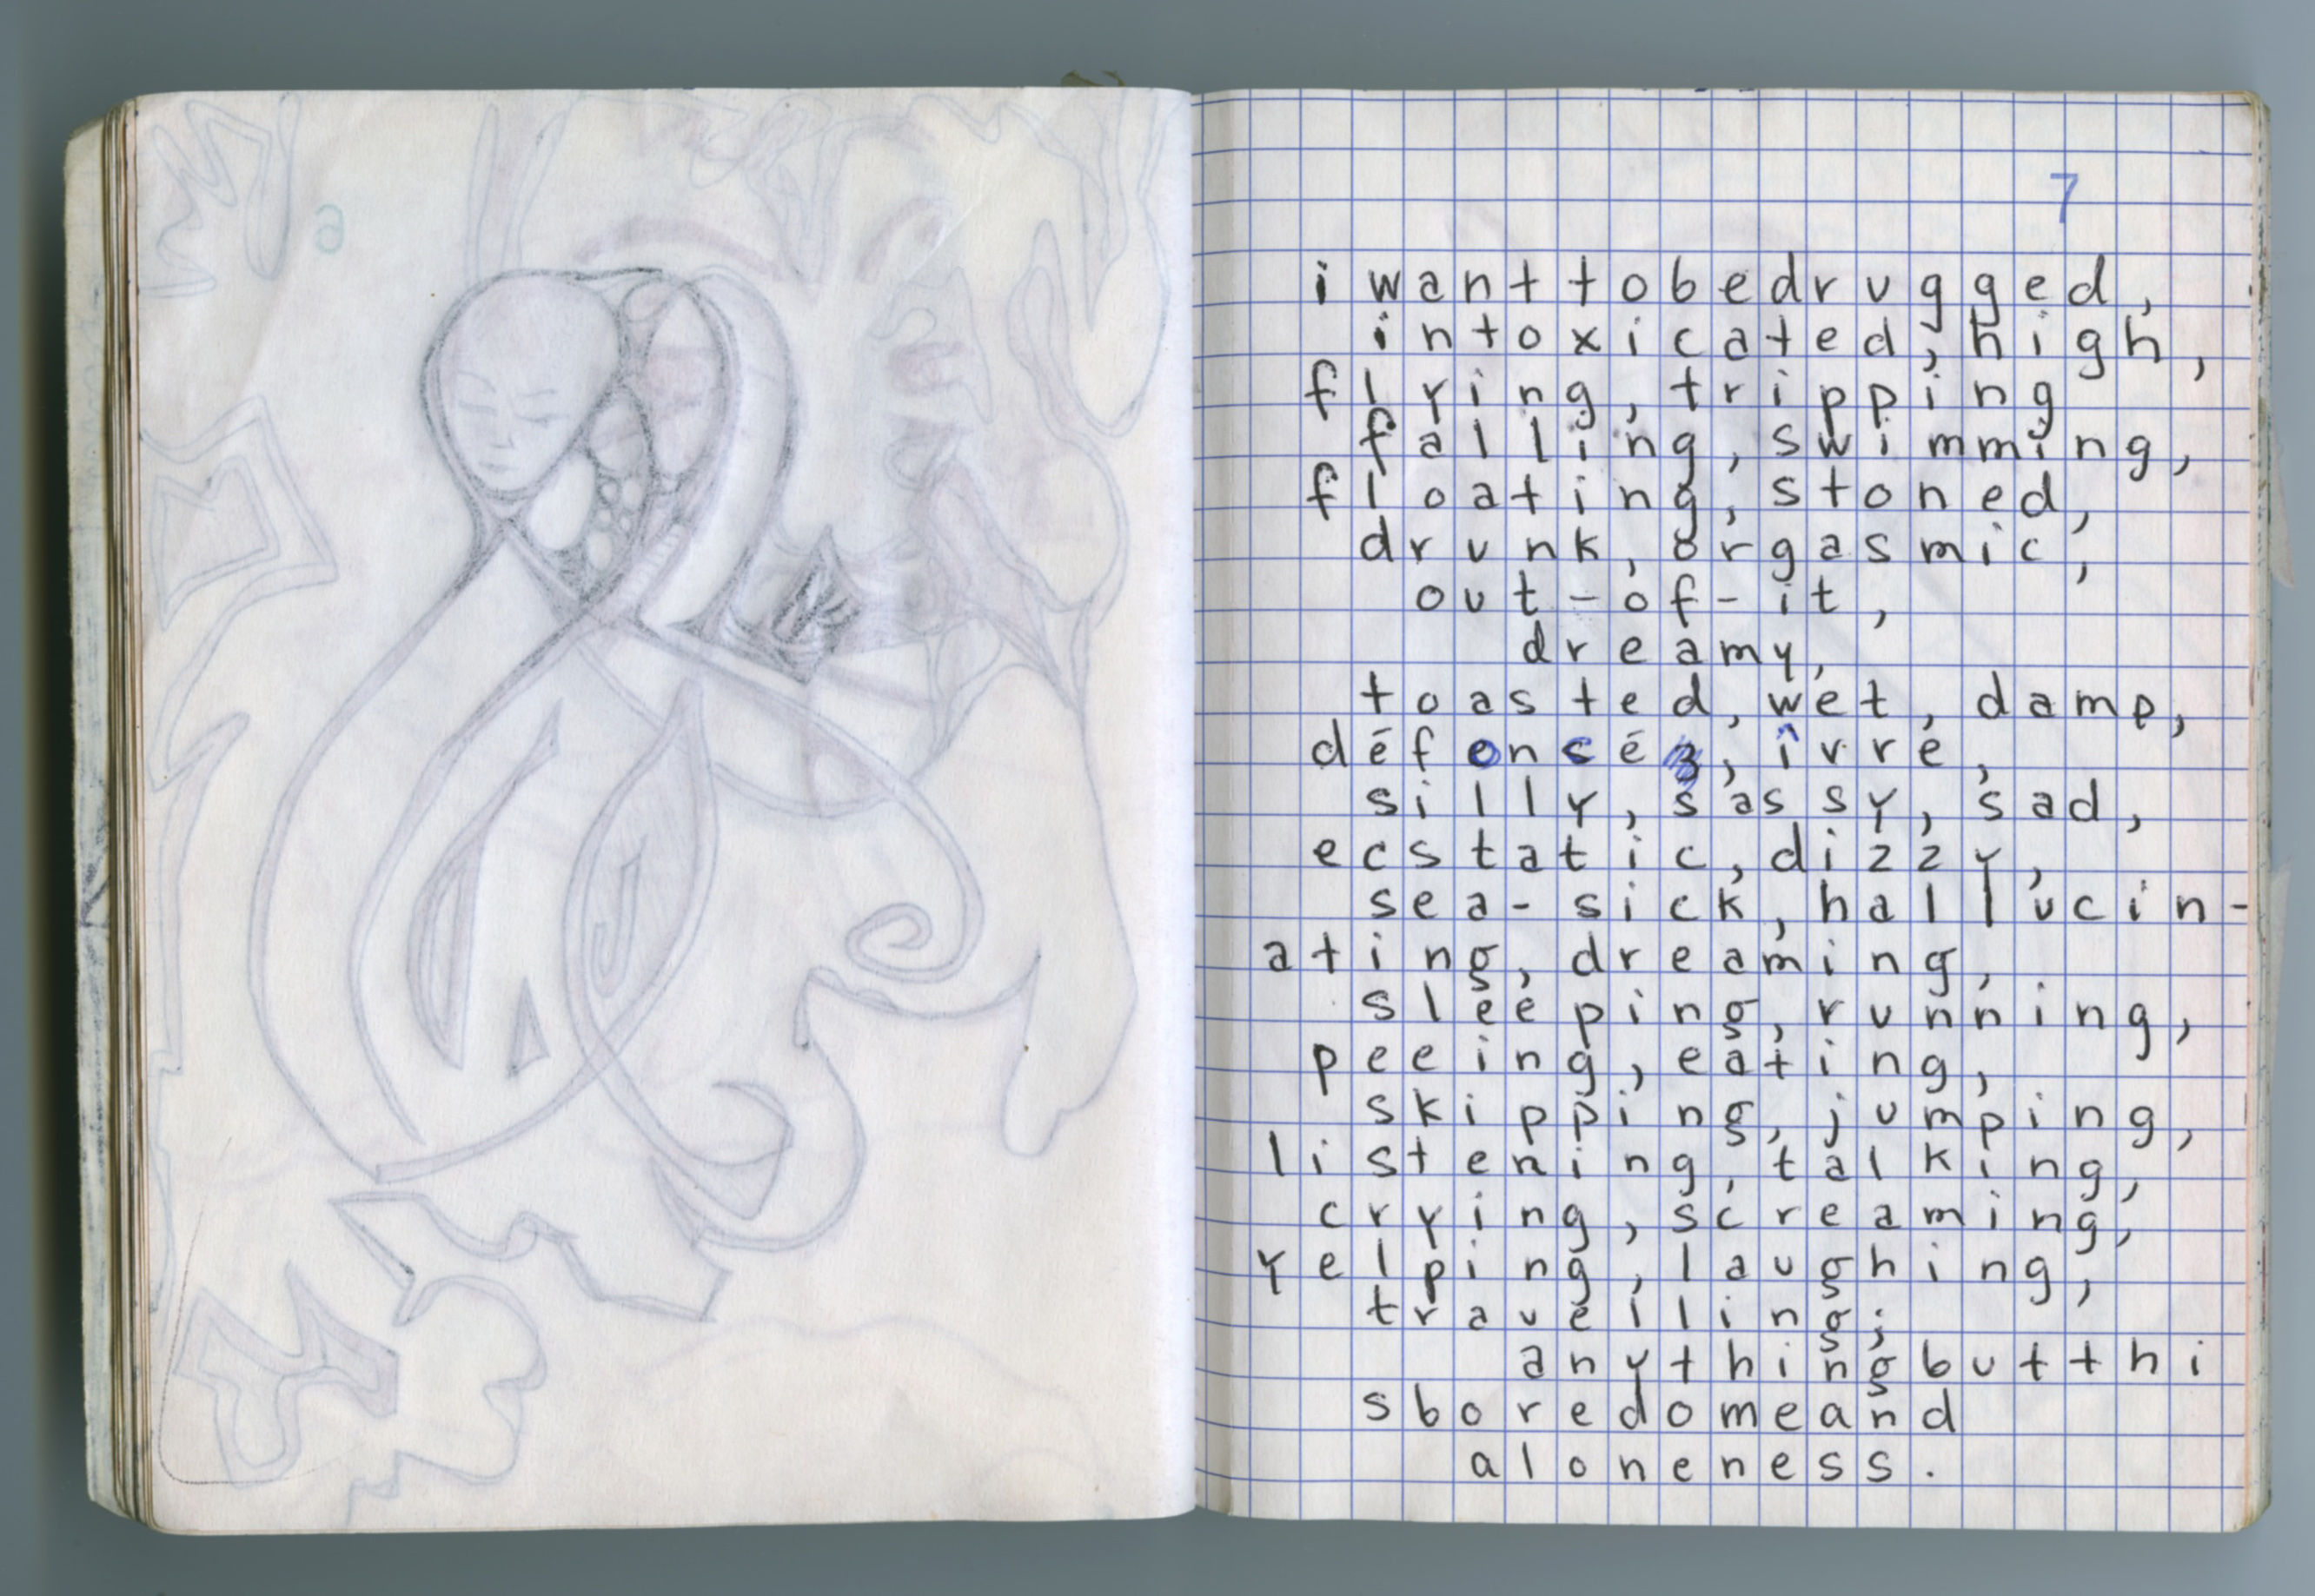 7
iwanttobedrugged,
intoxicated, high,
flying, tripping
falling, swimming,
floating, stoned,
drunk, orgasmic,
out-of-it,
dreamy,
toasted, wet, damp,
défoncé, ivre,
silly, sassy, sad,
ecstatic, dizzy,
sea-sick, hallucin-
ating, dreaming,
sleeping, running,
peeing, eating,
skipping, jumping,
listening, talking,
crying, screaming,
yelping, laughing,
travelling;
anythingbutthi
sboredomeand
aloneness.